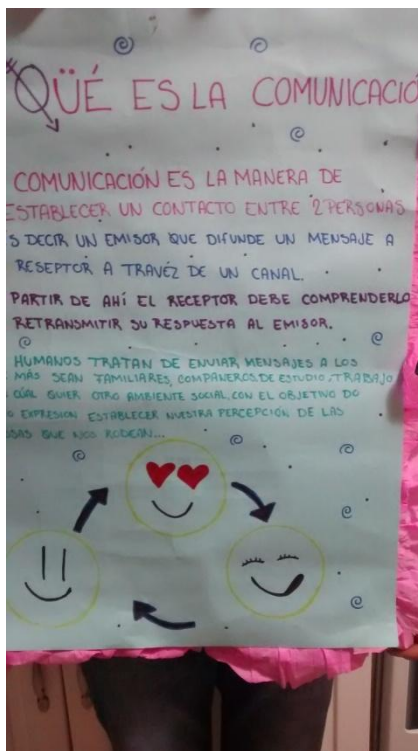 QÜÉ ES LA COMUNICACIO
COMUNICACIÓN ES LA MANERA DE
ESTABLECER UN CONTACTO ENTRE 2 PERSONAS
S DECIR UN EMISOR QUE DIFUNDE UN MENSAJE A
RESEPTOR A TRAVÉZ DE UN CANAL.
PARTIR DE AHÍ EL RECEPTOR DEBE COMPRENDERLO
RETRANSMITIR SU RESPUESTA AL EMISOR.
HUMANOS TRATAN DE ENVIAR MENSAJES A LOS
MÁS SEAN FAMILIARES, COMPAÑEROS DE ESTUDIO, TRABAJO
CÚAL QUIER OTRO AMBIENTE SOCIAL, CON EL OBJETIVO DO
EXPRESION ESTABLECER NUESTRA PERCEPCIÓN DE LAS
SAS QUE NOS RODEAN...